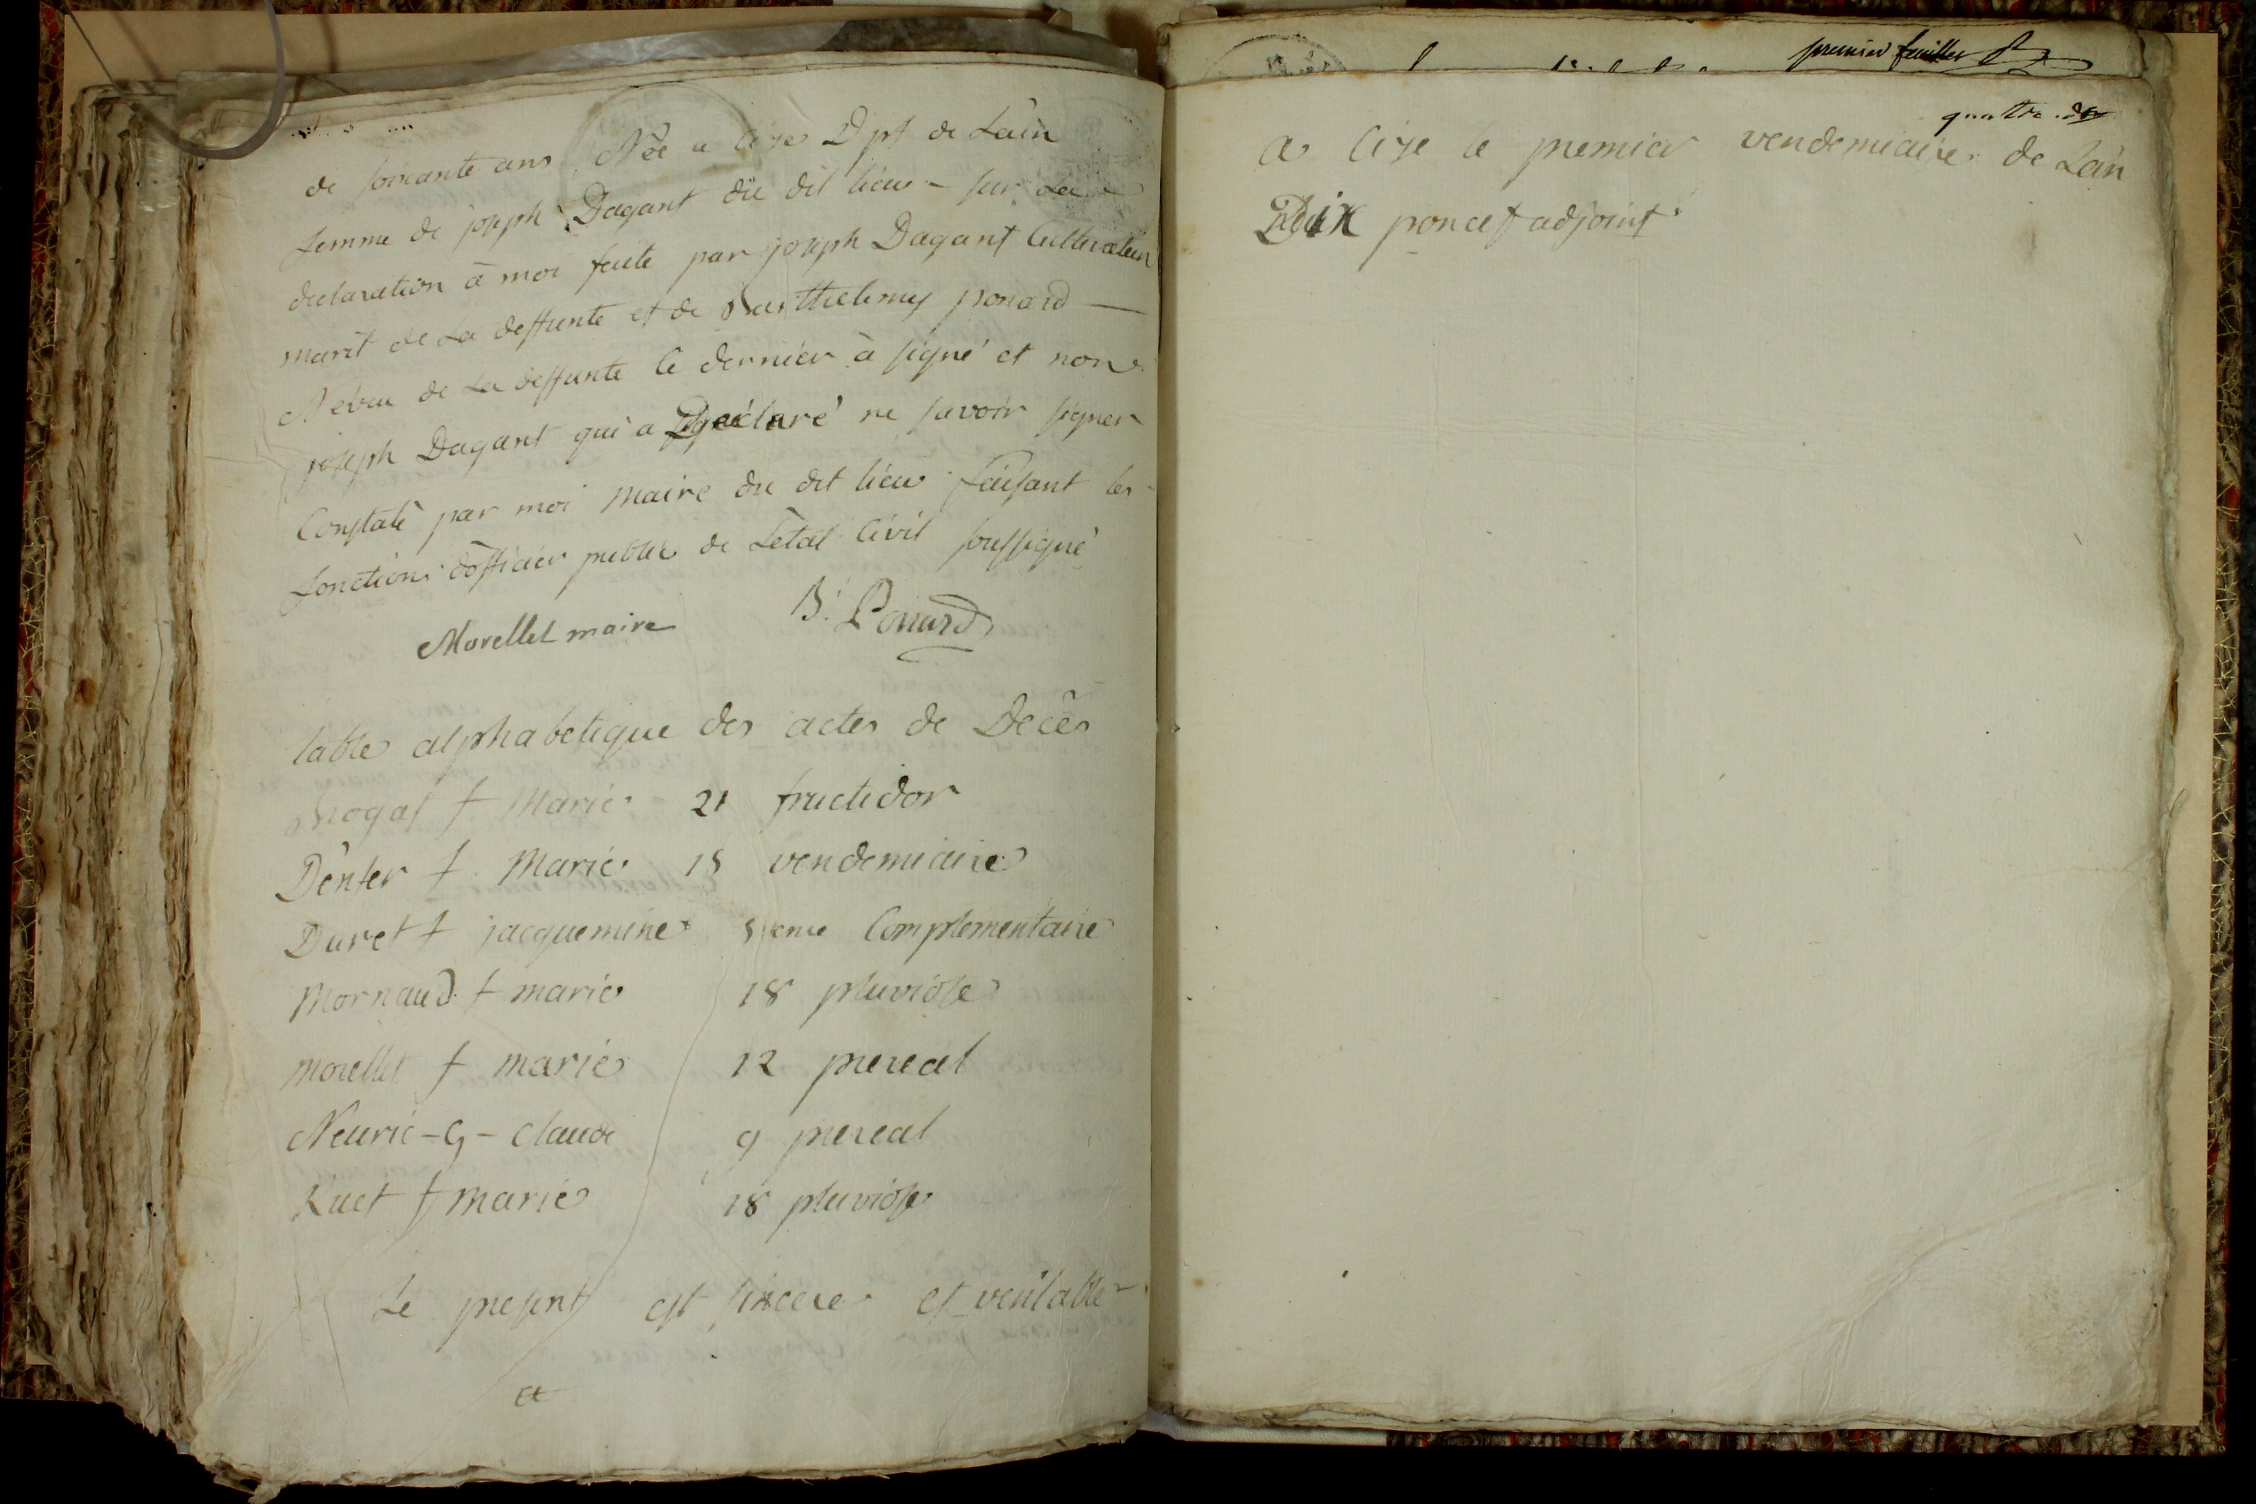 de soixante ans Née a Cize Dpt de Lain
femme de joseph Dagant du dit lieu - sur La
declaration à moi faite par joseph Dagant Cultivateur
marit de La deffunte et de Barthelemy ponard
Neveu de La deffunte le dernier à signé et non
joseph Dagant qui a Declaré ne savoir signer
Constaté par moi Maire du dit lieu faisant les
fonctions d'officier public de Letat Civil soussigné
Morellet maire B. Ponard
table alphabetique des actes de Decès
f Marie 21 fructidor
Denter f Marie 15 vendemiaire
Duret f jacquemine 5eme Complementaire
Mornaud f marie 18 pluviose
morellet f marie 12 prereal
Neurie - G - Claude 9 prereal
Ruet f marie 18 pluviose
Le present est sincere et veritable
a
premier feuillet
quattre
a Cize le premier vendemiaire de Lan
Dix poncet adjoint